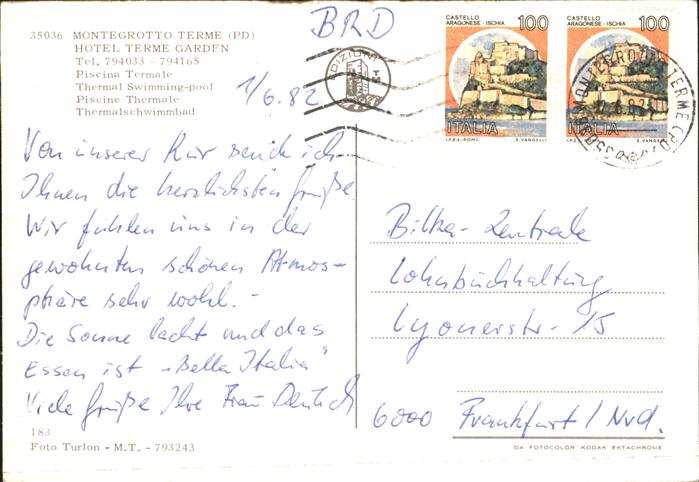 BRD
35036 MONTEGROTTO TERME (PD)
HOTEL TERME GARDEN
Tel. 794033 - 794165
Piscina Termale
Thermal Swimming-pool
Piscine Thermale
Thermalschwimmbad
1/6.82
EDIZIONI
CASTELLO
ARAGONESE - ISCHIA
100
ITALIA
I.P.Z.S. - ROMA
E. VANGELLI
CASTELLO
ARAGONESE - ISCHIA
100
ITALIA
I.P.Z.S. - ROMA
E. VANGELLI
MONTEGROTTO TERME (PD)
Von unserer Kur sende ich
Ihnen die herzlichsten Grüße.
Wir fühlen uns in der
gewohnten schönen Atmos-
phäre sehr wohl. -
Die Sonne lacht und das
Essen ist „Bella Italia"
Viele Grüße Ihre Frau Deutsch
Bilka-Zentrale
Lohnbuchhaltung
Lyonerstr- 15
6000 Frankfurt / Nrd.
183
Foto Turlon - M.T. - 793243
DA FOTOCOLOR KODAK EKTACHROME